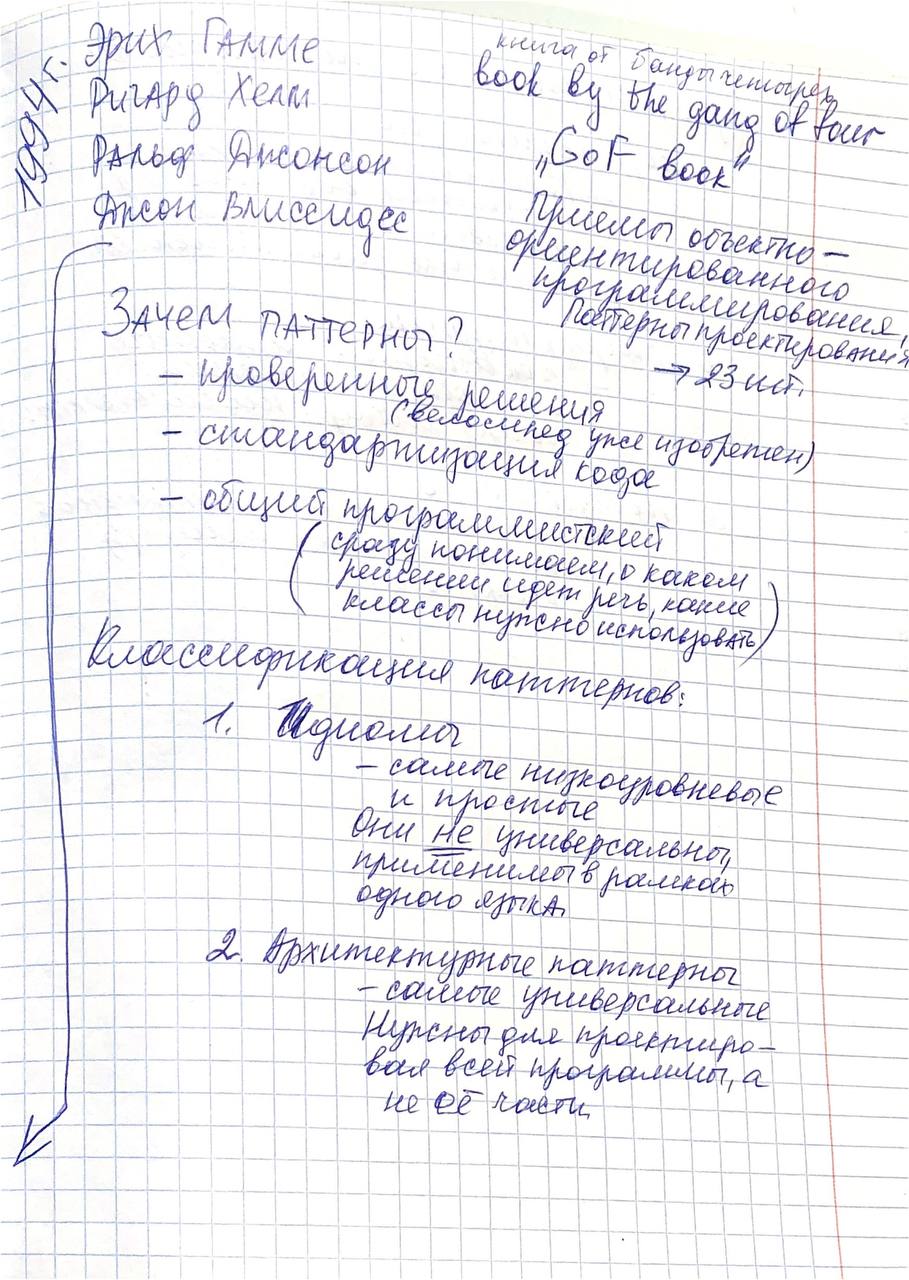 1994 г.
Эрих Гамме
Ричард Хелм
Ральф Джонсон
Джон Влиссидес
книга от банды четырех
book by the gang of four
„GoF book"
Приемы объектно-
ориентированного
программирования,
Паттерны проектирования
→ 23 шт.
Зачем паттерны?
– проверенные решения
(велосипед уже изобретен)
– стандартизация кода
– общий программистский
(сразу понимаем, о каком
решении идет речь, какие
классы нужно использовать)
Классификация паттернов:
1. Идиомы
– самые низкоуровневые
и простые
Они не универсальны,
применимы в рамках
одного языка.
2. Архитектурные паттерны
– самые универсальные
Нужны для проектиро-
вая всей программы, а
не её части.